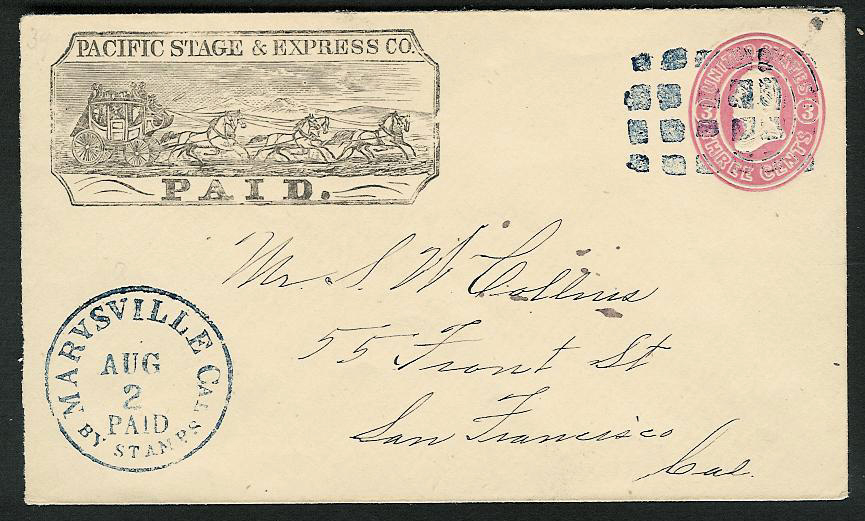 PACIFIC STAGE & EXPRESS CO.
PAID.
UNITED STATES
3 3
THREE CENTS
Mr. S. W Collins
55 Front St
San Francisco
Cal.
MARYSVILLE CAL
AUG
2
PAID
BY STAMPS